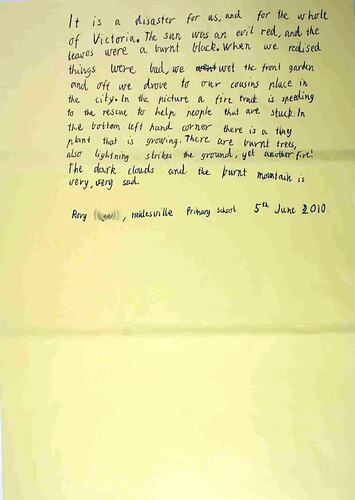 It is a disaster for us, and for the whole
of Victoria. The sun was an evil red, and the
leaves were a burnt black. When we realised
things were bad, we wet the front garden
and off we drove to our cousins place in
the city. In the picture a fire truck is speeding
to the rescue to help people that are stuck. In
the bottom left hand corner there is a tiny
plant that is growing. There are burnt trees,
also lightning strikes the ground, yet another fire!
The dark clouds and the burnt mountain is
very, very sad.
Rory , Healesville Primary School 5th June 2010.